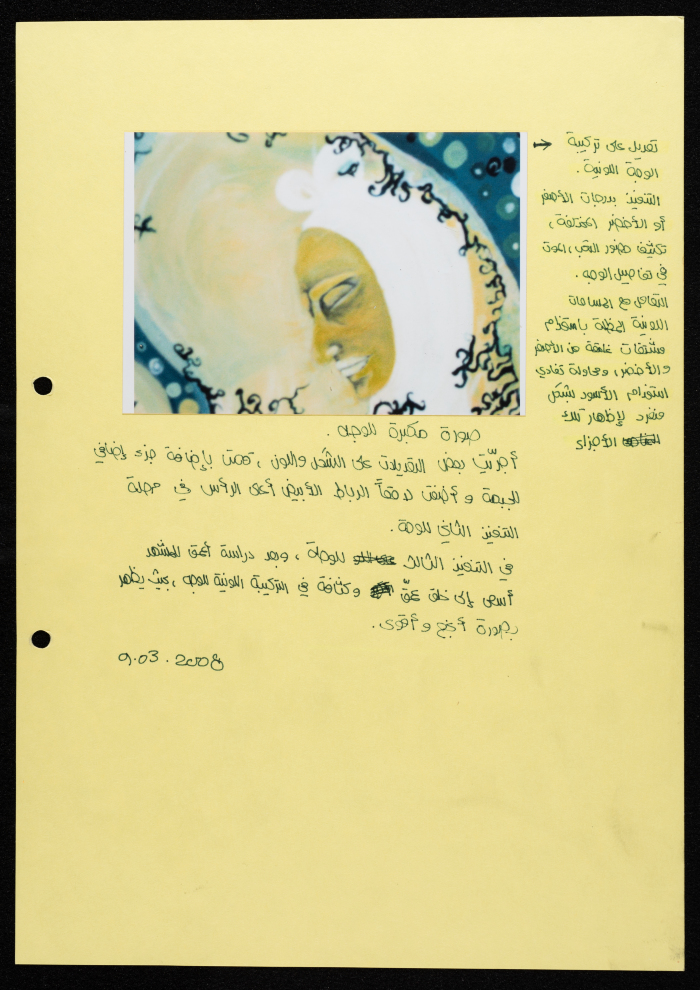 تعديل على تركيبة
الوجه اللونية.
التنفيذ بدرجات الأصفر
أو الأخضر المختلفة،
تكثيف حضور التعب، الموت
في تفاصيل الوجه.
التعامل مع المساحات
اللونية المظلة باستخدام
مشتقات غامقة من الأصفر
والأخضر، ومحاولة تفادي
استخدام الأسود بشكل
منفرد لإظهار تلك
الأجزاء
صورة مكبرة للوجه.
أجريت بعض التعديلات على الشكل واللون، قمت بإضافة جزء إضافي
للجبهة و أضفت لاحقاً الرباط الأبيض أعلى الرأس في مرحلة
التنفيذ الثاني للوحة.
في التنفيذ الثالث للوحة، وبعد دراسة أعمق للمشهد
أسعى إلى خلق عمق وكثافة في التركيبة اللونية للوجه، بحيث يظهر
بصورة أنجح وأقوى.
9.03.2008